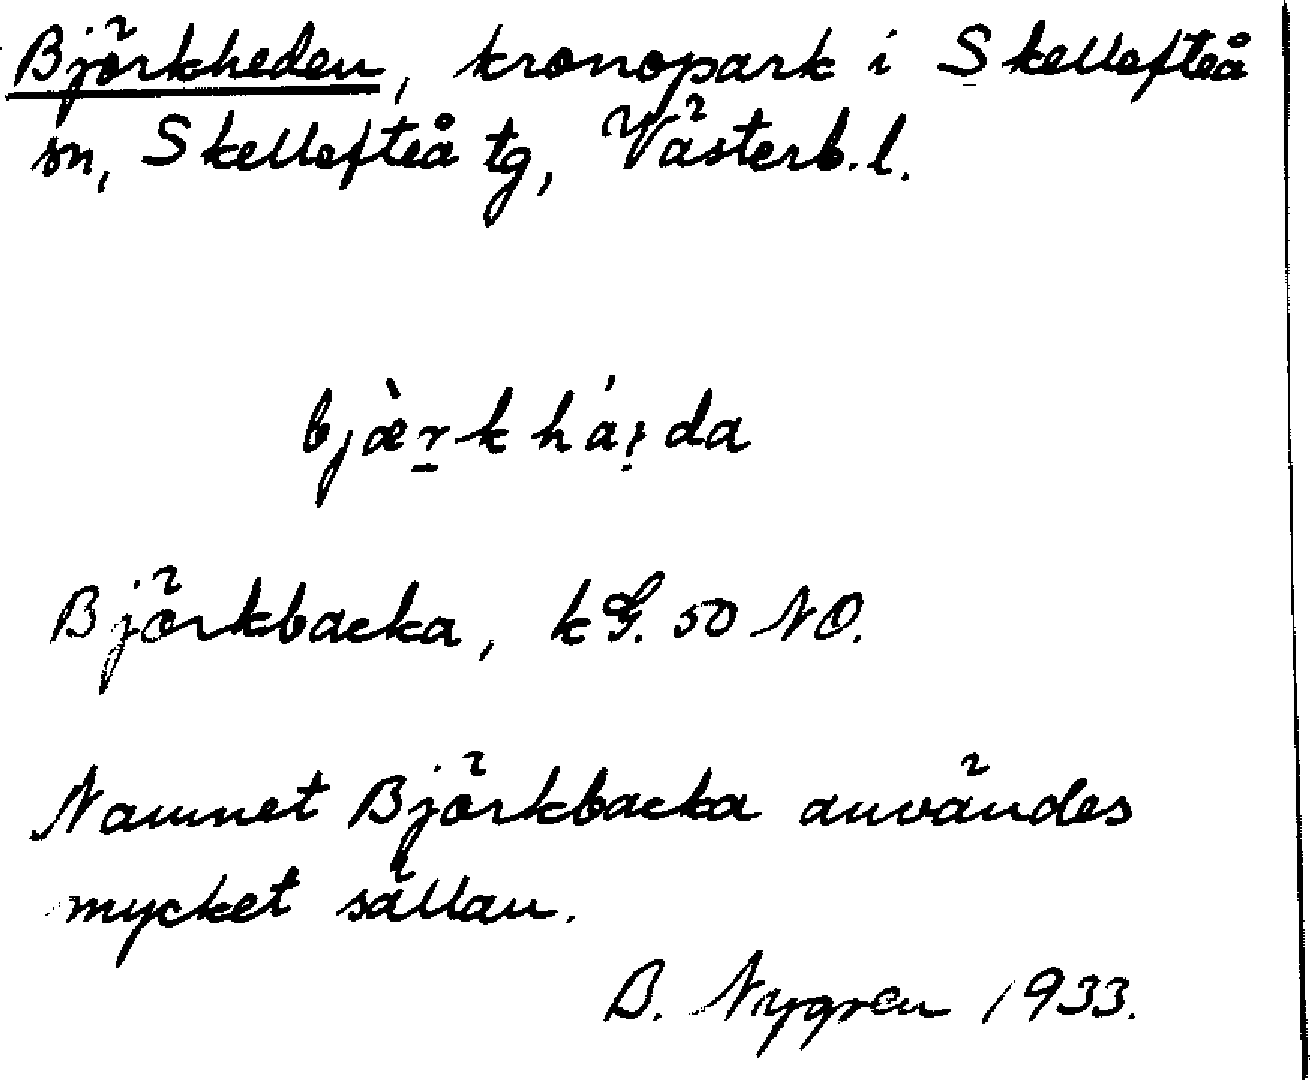 Björkheden, kronopark i Skellefteå
sn, Skellefteå tg, Västerb.l.
Björkbacka, kG. 50 NO.
Namnet Björkbacka användes
mycket sällan.
B. Nygren 1933.